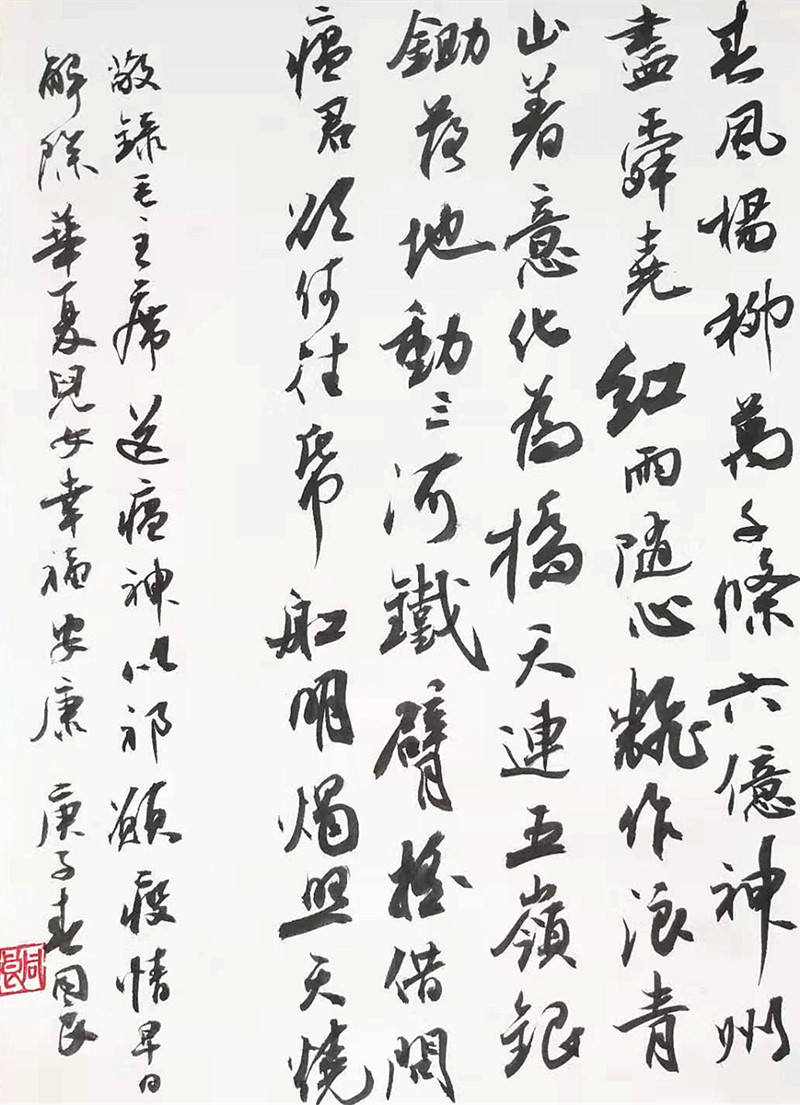 春風楊柳萬千條六億神州
盡舜堯紅雨隨心翻作浪青
山着意化為橋天連五嶺銀
鋤落地動三河鐵臂搖借問
瘟君欲何往帋船明燭照天燒
敬録毛主席送瘟神以祈願疫情早日
解除華夏兒女幸福安康 庚子春同良
同良